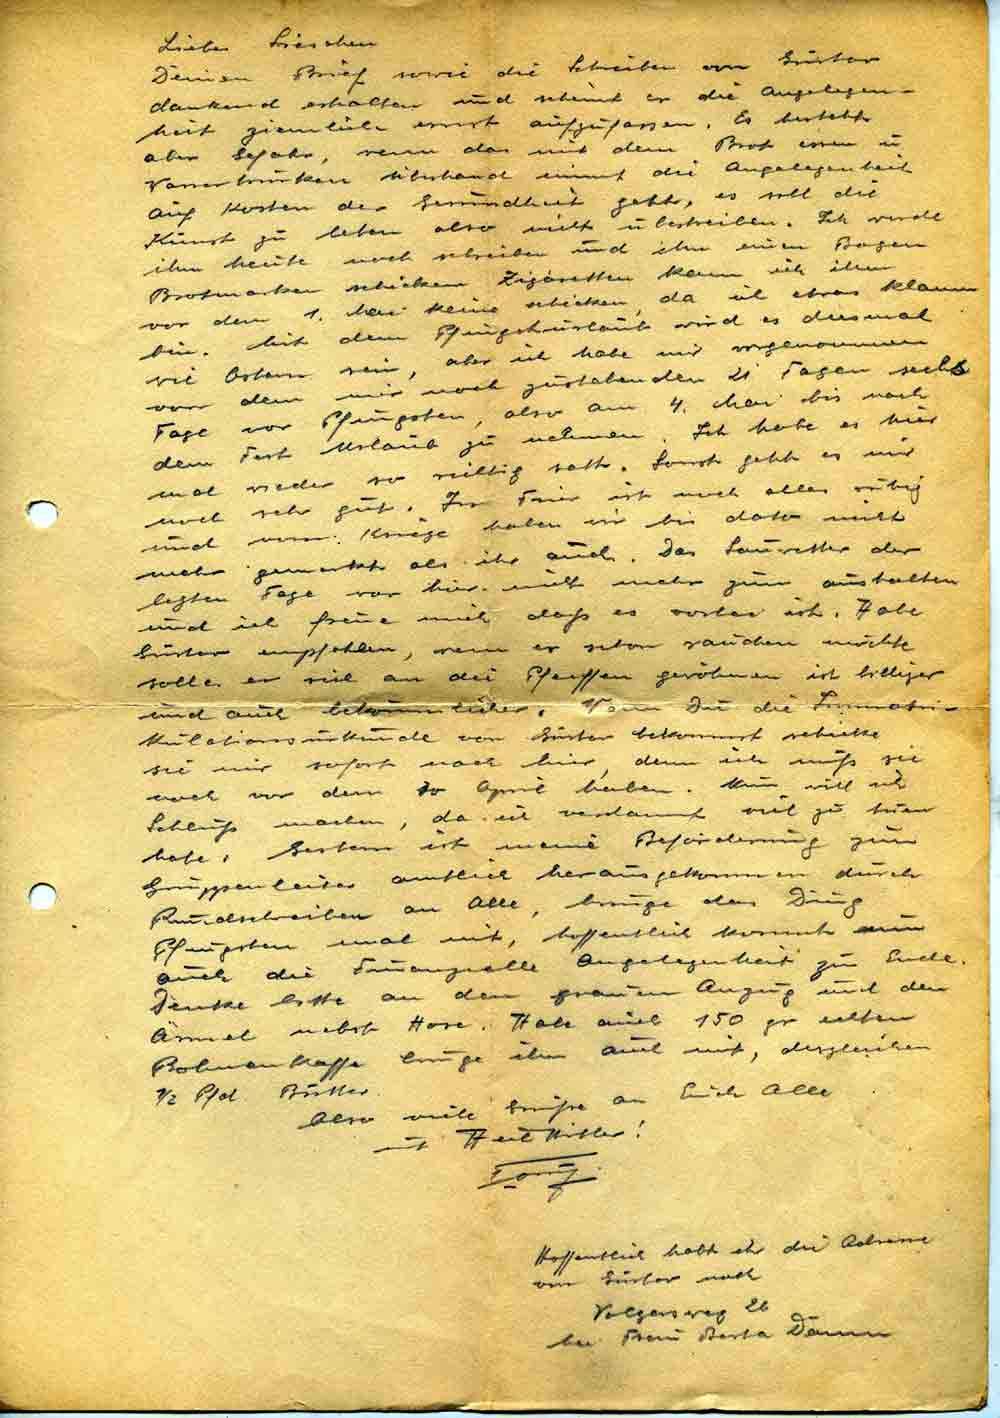 Liebes Lieschen
Deinen Brief sowie die Schreiben von Günter
dankend erhalten und scheint er die Angelegen-
heit ziemlich ernst aufzufassen. Es besteht
aber Gefahr, wenn das mit dem Brot essen u
Wassertrinken überhand nimmt die Angelegenheit
auf Kosten der Gesundheit geht, es soll die
Kunst zu leben also nicht übertreiben. Ich werde
ihm heute noch schreiben und ihm einen Bogen
Brotmarken schicken Zigaretten kann ich ihm
vor dem 1. Mai keine schicken, da ich etwas klamm
bin. Mit dem Pfingsturlaub wird es diesmal
wie Ostern sein, aber ich habe mir vorgenommen
von dem mir noch zustehenden 21 Tagen sechs
Tage vor Pfingsten, also am 4. Mai bis nach
dem Fest Urlaub zu nehmen. Ich habe es hier
mal wieder so richtig satt. Sonst geht es mir
noch sehr gut. In Trier ist noch alles ruhig
und vom Kriege haben wir bis dato nicht
mehr gemerkt als ihr auch. Das Sauwetter der
letzten Tage war hier nicht mehr zum aushalten
und ich freue mich daß es vorbei ist. Habe
Günter empfohlen, wenn er schon rauchen möchte
solle er sich an die Pfeiffen gewöhnen ist billiger
und auch bekömmlicher. Wenn Du die Immatri-
kulationsurkunde von Günter bekommst schicke
sie mir sofort nach hier, denn ich muß sie
noch vor dem April haben. Nun will ich
Schluß machen, da ich verdammt viel zu tuen
habe. Gestern ist meine Beförderung zum
Gruppenleiter amtlich herausgekommen durch
Rundschreiben an Alle, bringe das Ding
Pfingsten mal mit, hoffentlich kommt nun
auch die Finanzielle Angelegenheit zu Ende.
Denke bitte an den grauen Anzug und den
Ärmel nebst Hose. Habe auch 150 gr echten
Bohnenkaffe bringe ihn auch mit, desgleichen
1/2 Pfd Butter.
Also viele Grüße an Euch Alle
mit Heil Hitler!
Hoffentlich habt ihr die Adresse
von Günter noch
Volgersweg 26
bei Frau Berta Damm